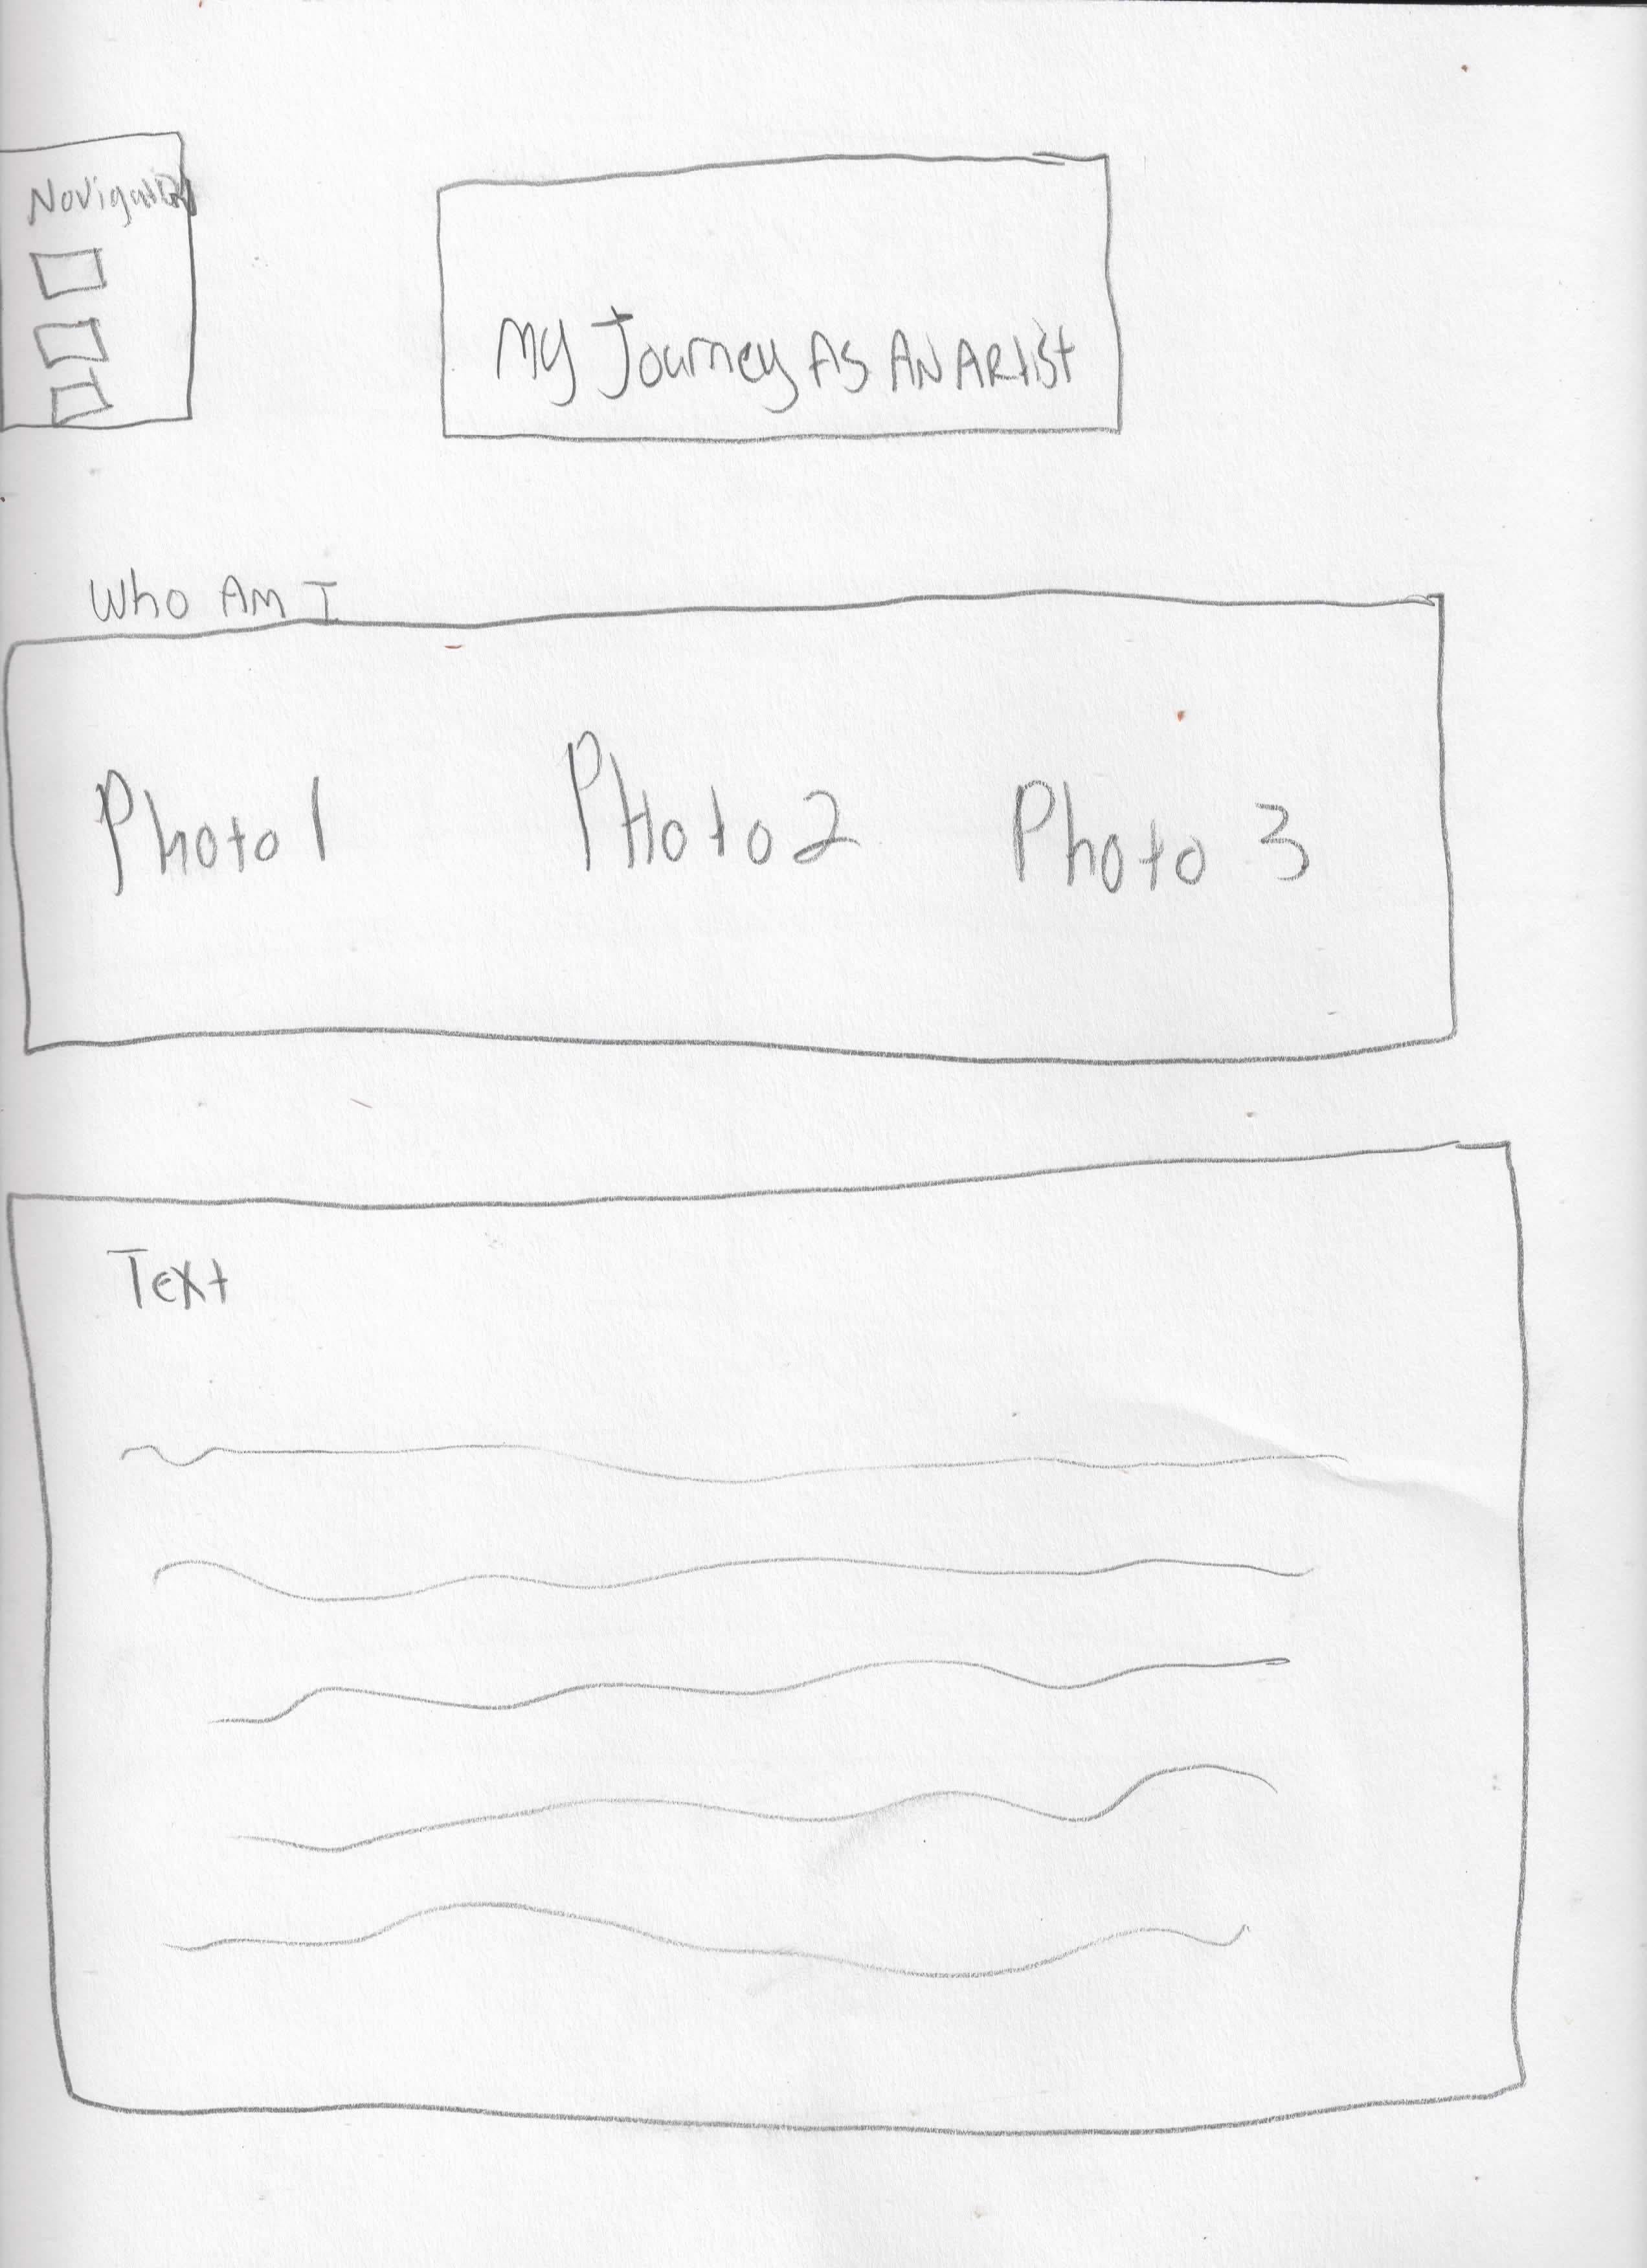 Navigation
My Journey As An Artist
Who Am I
Photo 1 Photo 2 Photo 3
Text